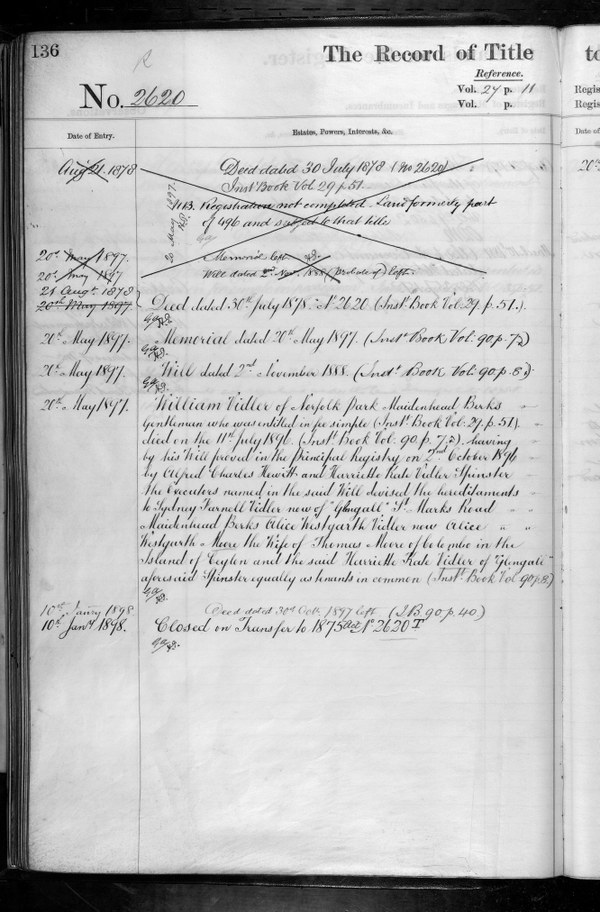 136
The Record of Title
Reference.
No. 2620
Vol. 24 p. 11
Vol. p.
Date of Entry.
Estates, Powers, Interests, &c.
Aug 21. 1878
Deed dated 30 July 1878 (No 2620)
Inst Book Vol. 29 p 51.
1113. Registration not completed. Land formerly part
of 496 and subject to that title
20 May 1897.
20th May 1897.
Memorial left
20th May 1897
Will dated 2nd Nov. 1888 (Probate of) left.
21 Augt. 1878
20th May 1897
Deed dated 30th July 1878. No 2620 (Inst. Book Vol: 29. p. 51.).
20th May 1897.
Memorial dated 20th May 1897. (Inst. Book Vol: 90 p. 72)
20th May 1897.
Will dated 2nd November 1888. (Inst. Book Vol: 90 p. 8.)
20th May 1897.
William Vidler of Norfolk Park Maidenhead Berks
Gentleman who was entitled in fee simple (Inst. Book Vol: 29. p. 51).
died on the 11th July 1896. (Inst. Book Vol: 90. p. 72). having
by his Will proved in the Principal Registry on 2nd October 1896
by Alfred Charles Hewitt and Harriette Kate Vidler Spinster
the Executors named in the said Will devised the hereditaments
to Sydney Farnell Vidler now of "Glengall" St. Marks Road
Maidenhead Berks Alice Westgarth Vidler now Alice
Westgarth Moore the Wife of Thomas Moore of Colombo in the
Island of Ceylon and the said Harriette Kate Vidler of "Glengall"
aforesaid Spinster equally as tenants in common (Inst. Book Vol 90 p. 8.)
10th January 1898
(Deed dated 30th Oct. 1897 left (I.B. 90 p. 40.)
10th Jany. 1898.
Closed on Transfer to 1875 Act No 2620 T
to
Regis
Regis
Date of
20th